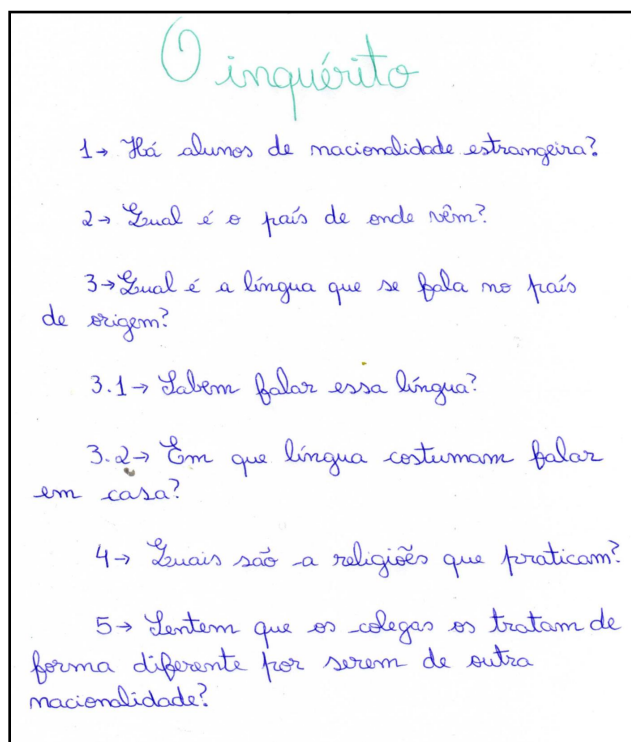 O inquérito
1→ Há alunos de nacionalidade estrangeira?
2→ Qual é o país de onde vêm?
3→ Qual é a língua que se fala no país
de origem?
3.1→ Sabem falar essa língua?
3.2→ Em que língua costumam falar
em casa?
4→ Quais são a religiões que praticam?
5→ Sentem que os colegas os tratam de
forma diferente por serem de outra
nacionalidade?